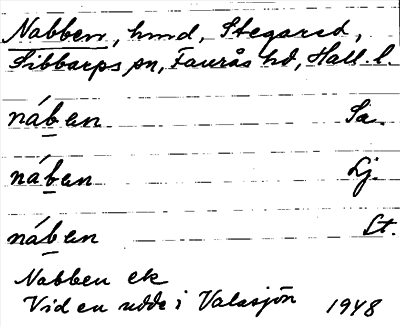 Nabben, hmd, Stegared,
Sibbarps sn, Faurås hd, Hall. l.
náb̲an Sa.
náb̲an Lj.
náb̲an St.
Nabben ek
Vid en udde i Valasjön 1948